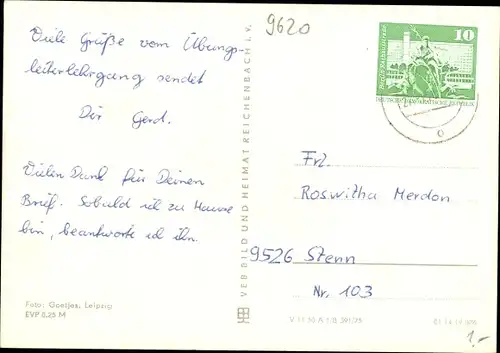 9620
Viele Grüße vom Übungs-
leiterlehrgang sendet
Dir Gerd.
Vielen Dank für Deinen
Brief. Sobald ich zu Hause
bin, beantworte ich ihn.
Foto: Goetjes, Leipzig
EVP 0,25 M
VEB BILD UND HEIMAT REICHENBACH i. V.
10
DEUTSCHE DEMOKRATISCHE REPUBLIK
Frl.
Roswitha Merdon
9526 Stenn
Nr. 103
V 11 50 A 1/B 391/75
1,-